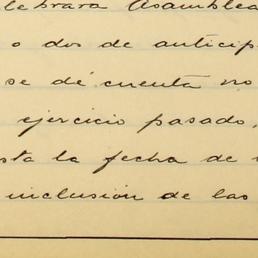 lebrara Asamblea
o dos de anticip
se dé cuenta no
ejercicio pasado,
sta la fecha de
inclusión de las